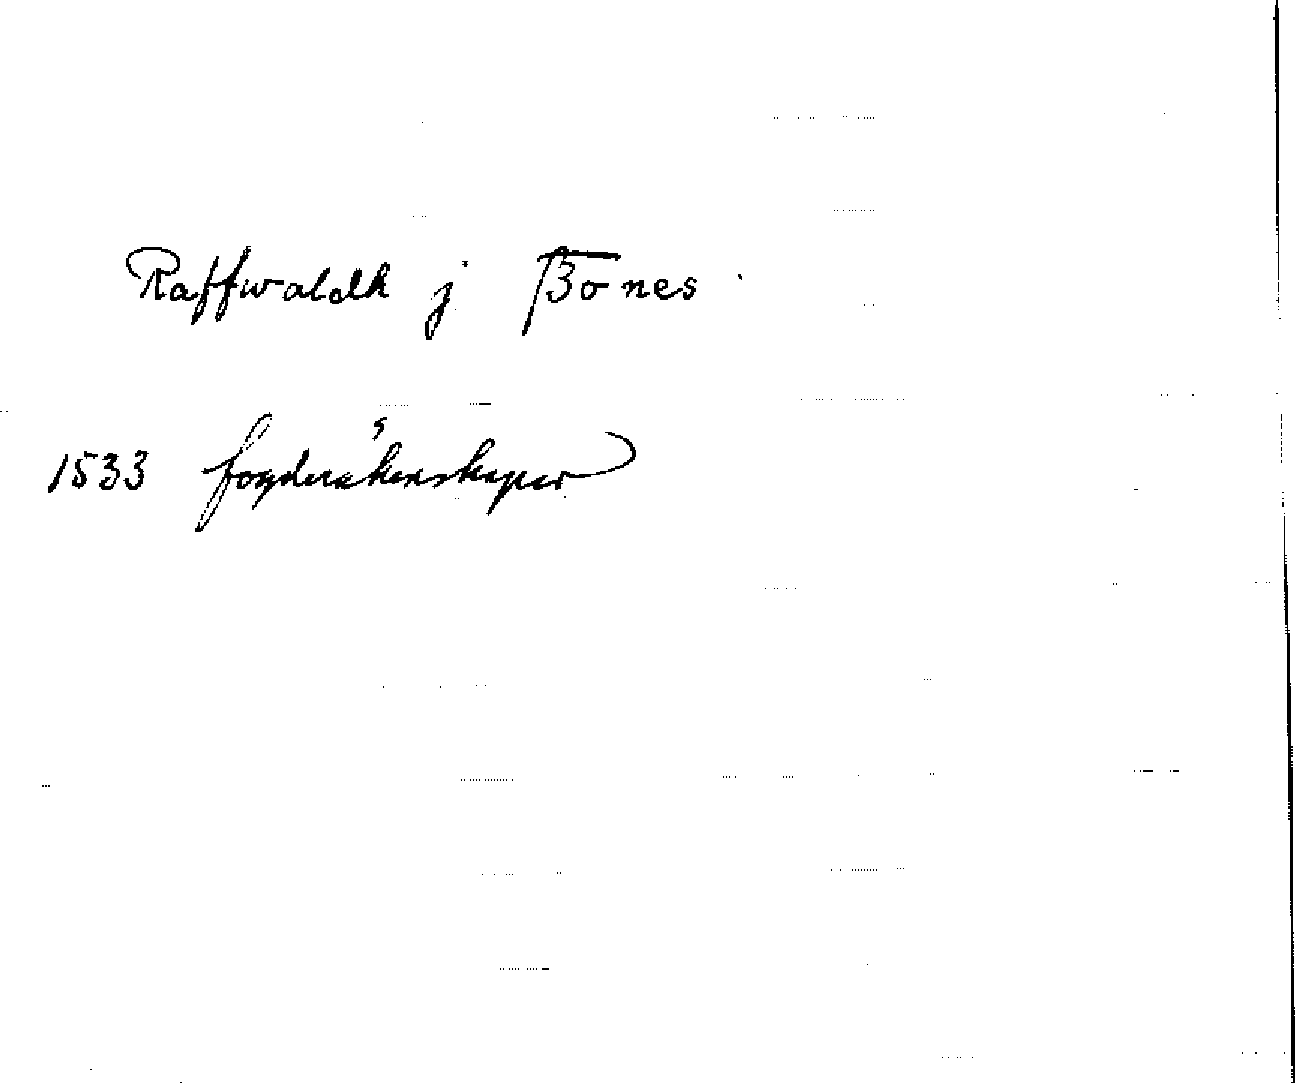 Raffwaldh j Bönes
1533 fogderäkenskaper